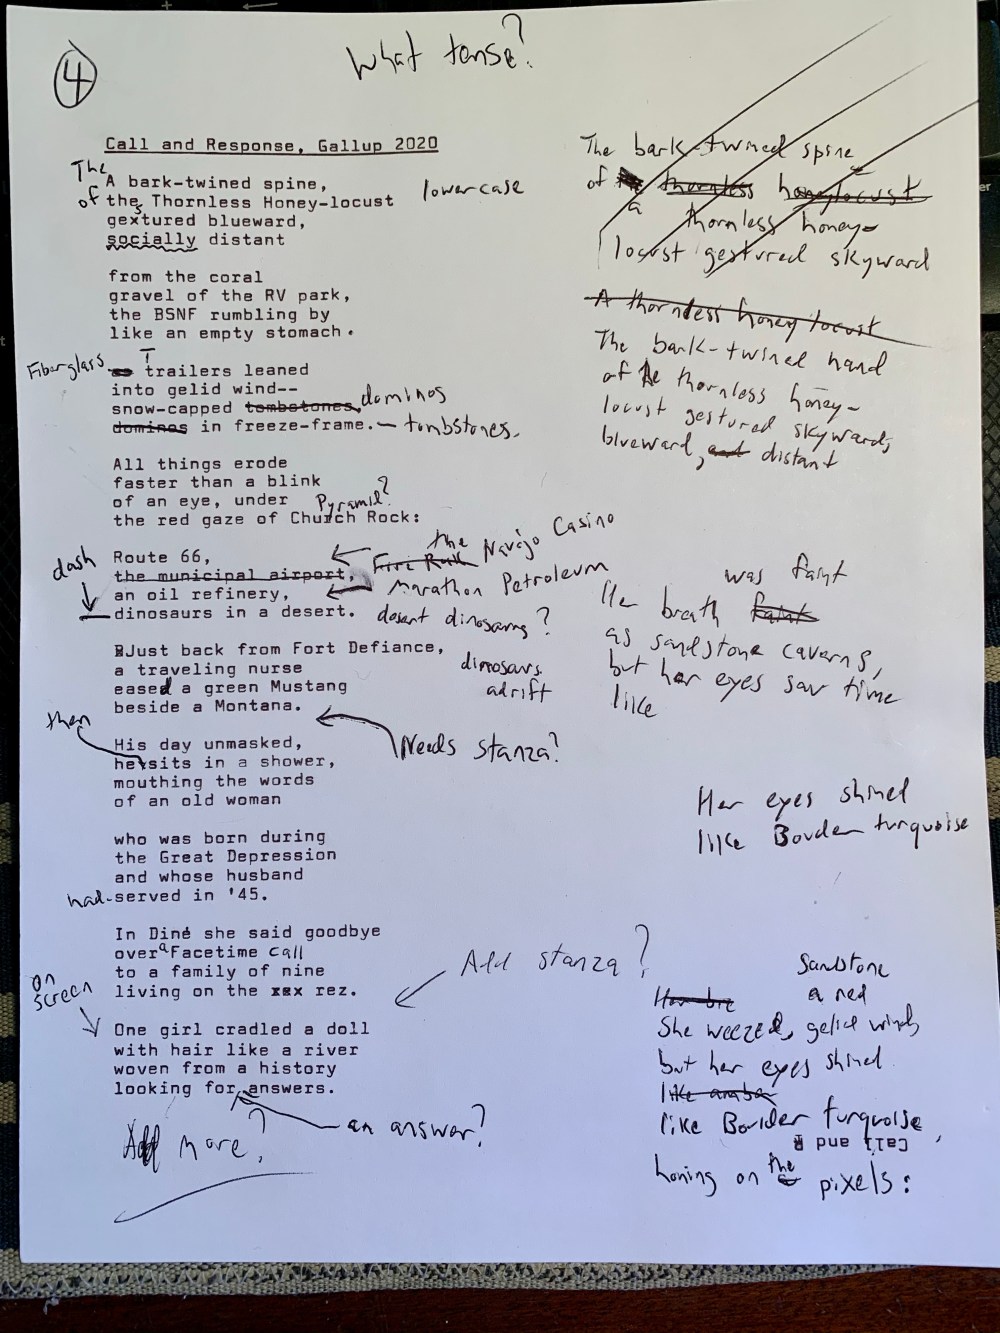 What tense?
4
Call and Response, Gallup 2020
The
A bark-twined spine,
of the Thornless Honey-locust
lowercase
gestured blueward,
socially distant
from the coral
gravel of the RV park,
the BSNF rumbling by
like an empty stomach.
Fiberglass
T
trailers leaned
into gelid wind--
snow-capped tombstones, dominos
dominos in freeze-frame. - tombstones.
All things erode
faster than a blink
of an eye, under
Pyramid?
the red gaze of Church Rock:
dash
Route 66,
the Fire Rock Navajo Casino
the municipal airport,
Marathon Petroleum
an oil refinery,
dinosaurs in a desert.
desert dinosaurs?
dinosaurs
adrift
Just back from Fort Defiance,
a traveling nurse
eased a green Mustang
beside a Montana.
Needs stanza?
then
His day unmasked,
he sits in a shower,
mouthing the words
of an old woman
who was born during
the Great Depression
and whose husband
had served in '45.
In Diné she said goodbye
over a Facetime call
to a family of nine
living on the xxx rez.
Add stanza?
on
screen
One girl cradled a doll
with hair like a river
woven from a history
looking for answers.
an answer?
Add more?
The bark-twined spine
of the thornless honeylocust
a thornless honey-
locust gestured skyward
A thornless honey locust
The bark-twined hand
of the thornless honey-
locust gestured skyward,
blueward, and distant
was faint
Her breath faint
as sandstone caverns,
but her eyes saw time
like
Her eyes shined
like Bouder turquoise
Sandstone
a red
Her bre
She weezed, gelid winds
but her eyes shined
like amber
like Boulder turquoise,
Call and R
honing on the pixels: